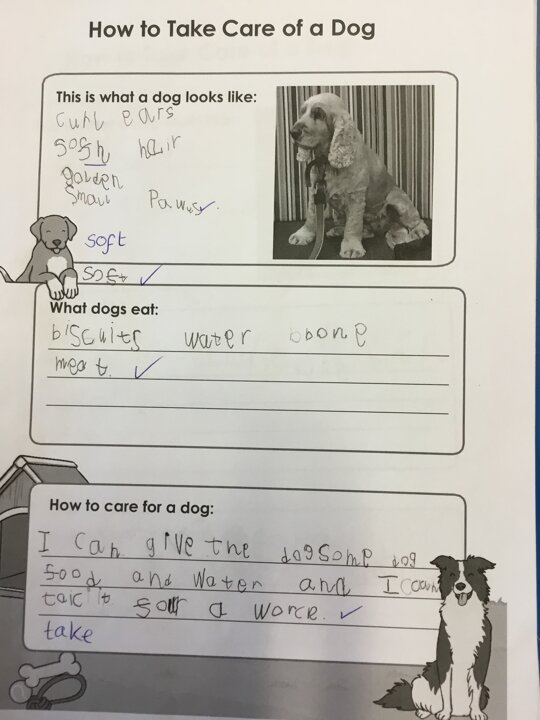 How to Take Care of a Dog
This is what a dog looks like:
curl ears
sofh hair
golden
small Paws.
soft
soft
What dogs eat:
biscuits water bone
meat.
How to care for a dog:
I can give the dog some dog
food and water and I can
taic it for a worce.
take